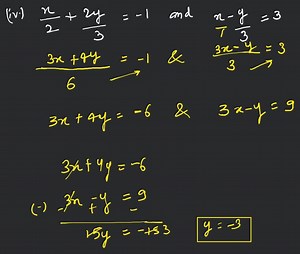 (iv) x/2 + 2y/3 = -1 and x/1 - y/3 = 3
3x + 4y / 6 = -1 & 3x - y / 3 = 3
3x + 4y = -6 & 3x - y = 9
3x + 4y = -6
(-) 3x - y = 9
- + -
5y = -15 3
y = -3